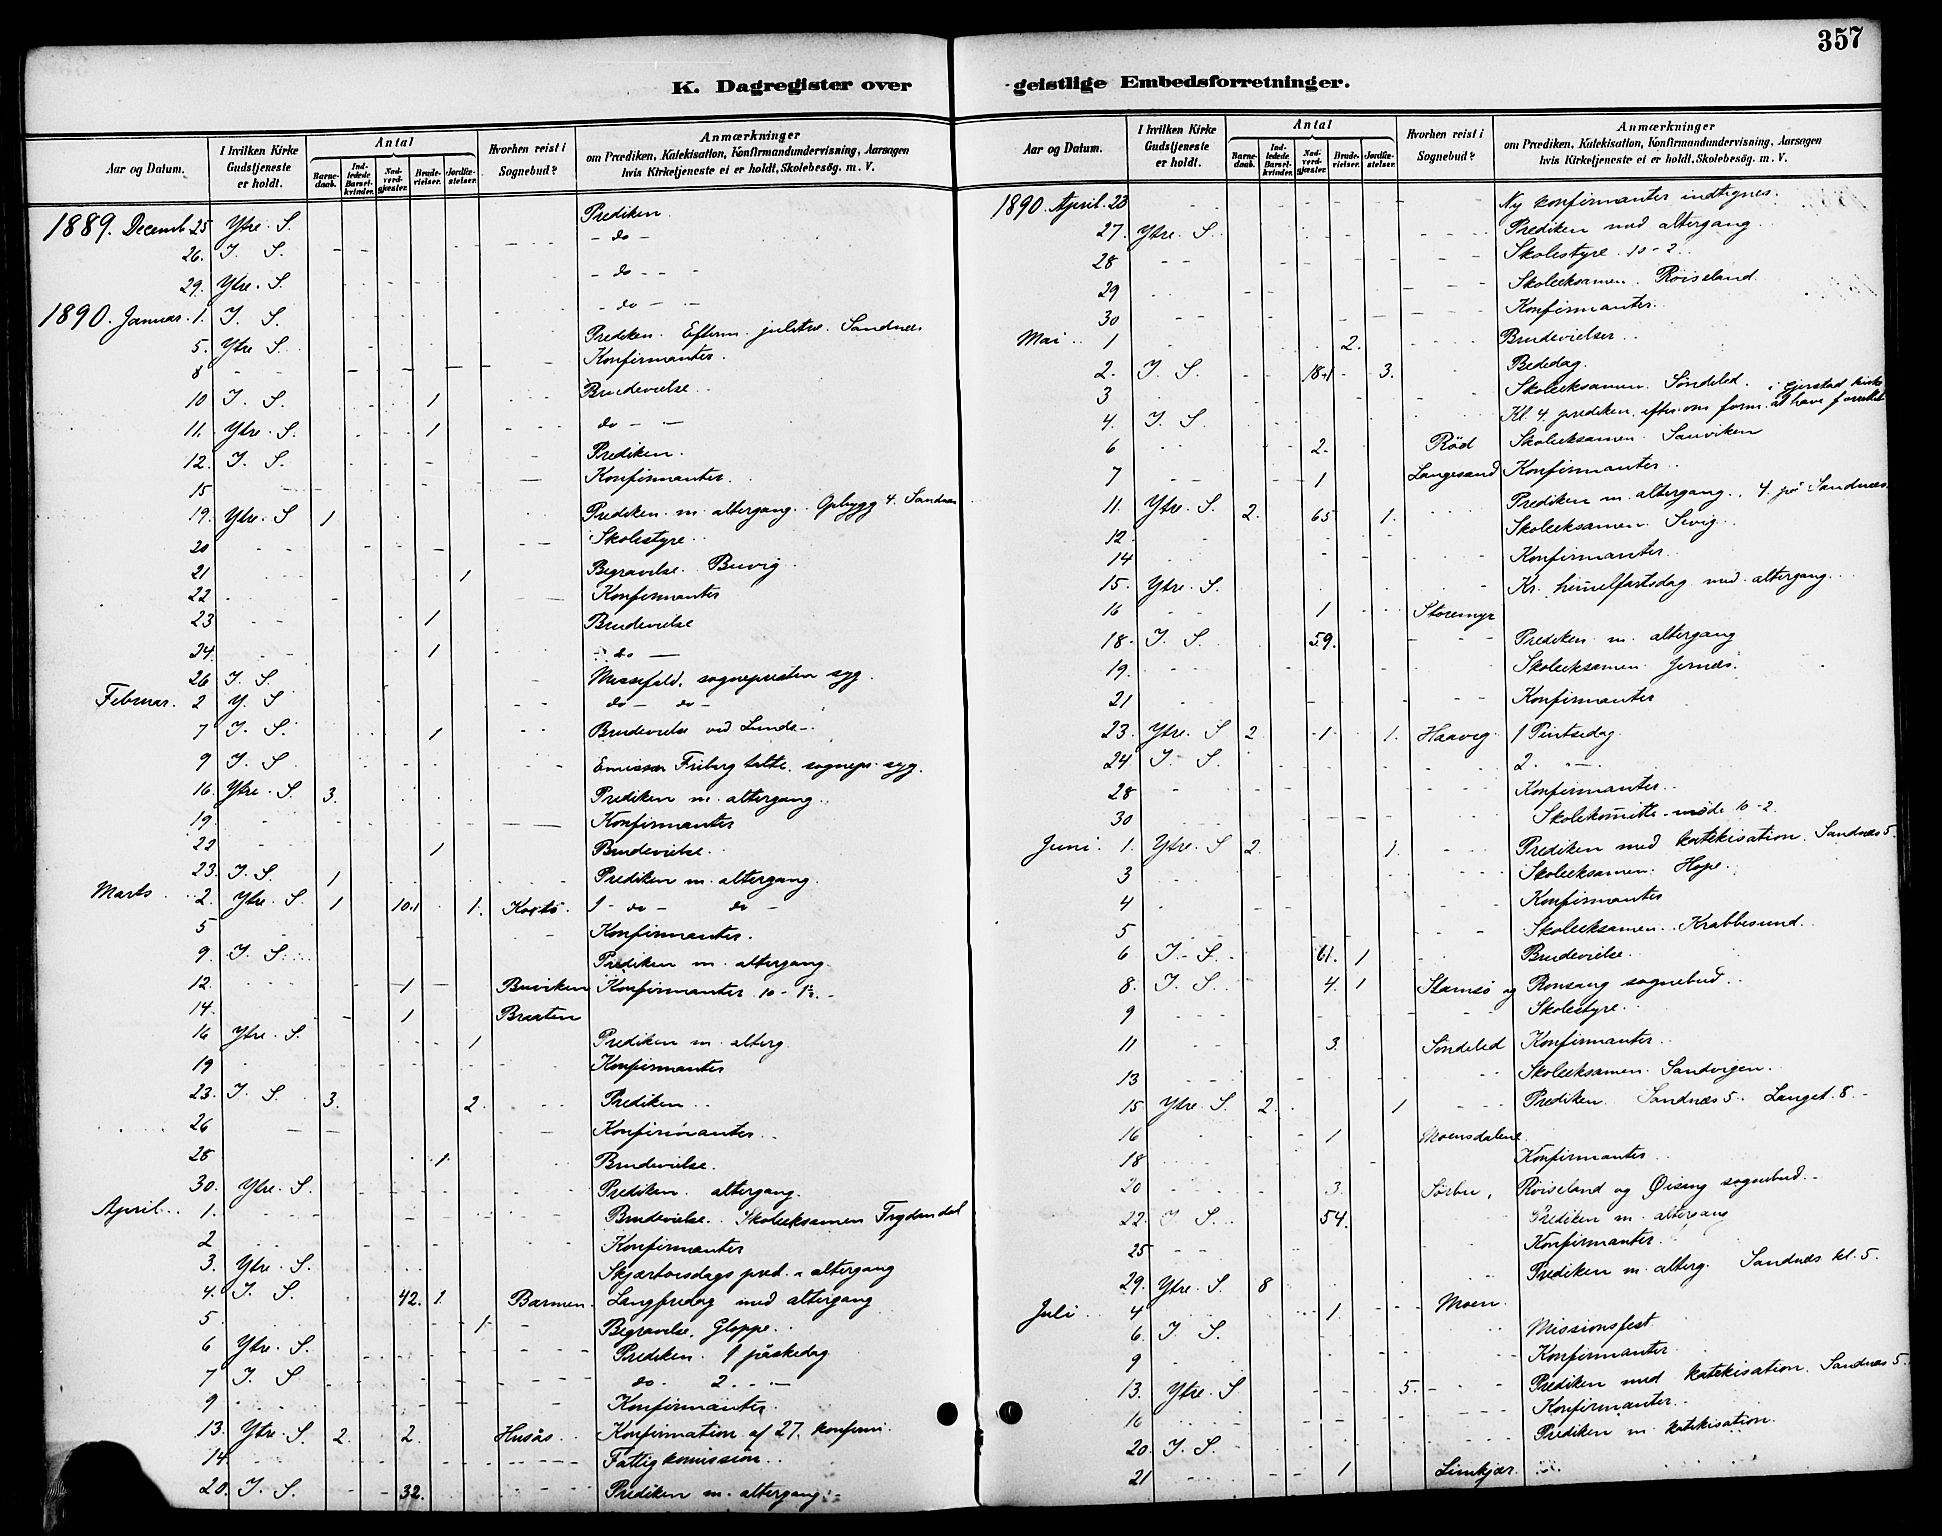 357
K. Dagregister over geistlige Embedsforretninger.
Aar og Datum. I hvilken Kirke Gudstjeneste er holdt. Antal Barnedaab. Indledede Barselkvinder. Nadverdgjæster. Brudevielser. Jordfæstelser. Hvorhen reist i Sognebud? Anmærkninger om Prædiken, Katekisation, Konfirmandundervisning, Aarsagen hvis Kirketjeneste ei er holdt, Skolebesög. m. V.
1889. Decemb. 25 Ytre. S. Prediken
26. I. S. - do -
29. Ytre. S. - do - -
1890. Januar. 1. I. S. - do - -
5. Ytre S. Prediken. Efterm. juletræ. Sandnæs
8 Konfirmanter.
10 I. S. 1 Brudevielse
11. Ytre. S. 1 do - -
12. I. S. Prediken.
15 Konfirmanter.
19. Ytre. S 1 Prediken. m. altergang. Opbygg 4. Sandnæs
20 Skolestyre
21 1 Begravelse. Buvig
22 Konfirmanter
23 1 Brudevielse
24. 1 - do -
26 I. S. Messefald, sognepresten syg.
Februar. 2 Y. S do - do -
7 I. S. 1 Brudevielse ved Lunde -
9 I. S Emissær Friberg talte, sognepr. syg.
16. Ytre. S. 3. Prediken m. altergang.
19. Konfirmanter
22 1 Brudevielse.
23. I. S. 1 Prediken m. altergang.
Marts 2. Ytre. S. 1 10.1 1. do - do -
5 Konfirmanter.
9. I. S. Prediken m. altergang.
12. 1 Buviken Konfirmanter 10 -
14. 1 Braaten
16 Ytre. S. 1 Prediken m. alterg.
19 Konfirmanter
23. I. S 3. 2. Prediken
26 Konfirmanter.
28 1. Brudevielse.
30. Ytre. S. Prediken. altergang.
April. 1. Brudevielse. Skoleeksamen
2 Konfirmanter
3. Ytre. S. Skjærtorsdags præd. altergang
4. I. S. 42. 1. Barmen. Langfredag med altergang
5. 1. Begravelse, Gloppe.
6 Ytre. S. Prediken. 1 påskedag
7 I. S do. 2. - -
9 Konfirmanter.
13. Ytre. S. 2. 2. Husås Konfirmation af 27. konfirm.
14. Fattigkomission
20. I. S. 32. Prediken m. altergang.
Aar og Datum. I hvilken Kirke Gudstjeneste er holdt. Antal Barnedaab. Indledede Barselkvinder. Nadverdgjæster. Brudevielser. Jordfæstelser. Hvorhen reist i Sognebud? Anmærkninger om Prædiken, Katekisation, Konfirmandundervisning, Aarsagen hvis Kirketjeneste ei er holdt, Skolebesög. m. V.
1890. April. 23 Ny konfirmanter indtegnes.
27. Ytre. S. Prediken med altergang
28 Skolestyre. 10 - 2
29 Skoleeksamen. Røiseland.
30 Konfirmanter.
Mai 1 2. Brudevielser
2. I. S. 18.1 3. Bededag.
3 Skoleeksamen. Søndeled. i Gjerstad kirke
4. I. S Kl. 4 prediken efter om form. at have forrettet
6 2. Rød Skoleeksamen. Sanviken
7 1 Langesand Konfirmanter
11. Ytre. S. 2. 65 1. Prediken m. altergang. 4. på Sandnæs
12. Skoleeksamen. Sivig.
14 Konfirmanter.
15. Ytre. S. Kr. himmelfartsdag med altergang.
16 1 Storemyr
18. I. S. 59. Prediken m. altergang
19. Skoleeksamen
21 Konfirmanter
23. Ytre. S 2 1 1. Haavig 1 Pintsedag
24 I. S. 2. - -
28 Konfirmanter.
30 Skolekomitte - møde 10 - 2.
Juni. 1. Ytre. S 2. 1. Prediken med katekisation. Sandnæs 5.
3 Skoleeksamen. Hope.
4 Konfirmanter
5 Skoleeksamen. Krabbesund.
6 I. S. 61. 1 Brudevielse.
8. I. S. 4. 1 Stamsø og Ronsang sognebud
9 Skolestyre.
11 3. Søndeled Konfirmanter.
13 Skoleeksamen. Sandvigen.
15 Ytre. S. 2. 1 Prediken. Sandnæs 5. Langet. 8.
16 1 Moensdalene
18 Konfirmanter
20 3. Sørbu, Røiseland og Øisang sognebud.
22. I S. 54. Prediken m. altergang
25 Konfirmanter.
29. Ytre. S. 8 Prediken m. alterg. Sandnæs kl. 5.
Juli 4 1. Moen.
6. I. S. Missionsfest
9 Konfirmanter.
13. Ytre. S 5. Prediken med katekisation. Sandnæs 5.
16 Konfirmanter.
20. I. S. Prediken m. katekisation.
21 1 Limkjær.